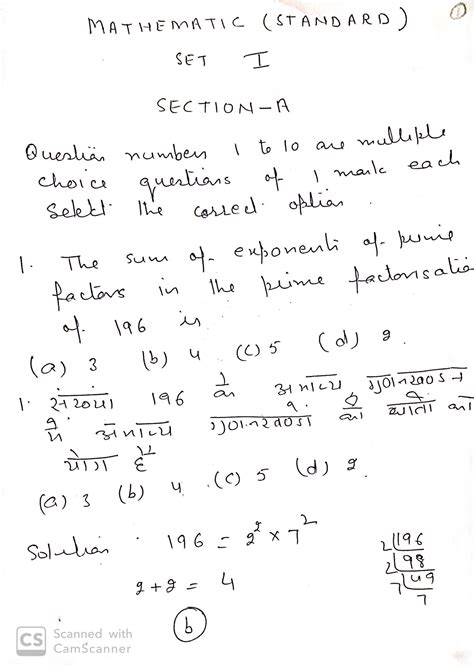 ①
MATHEMATIC (STANDARD)
SET I
SECTION-A
Question numbers 1 to 10 are multiple
choice questions of 1 mark each
Select the correct option.
1. The sum of exponents of prime
factors in the prime factorisation
of 196 is
(a) 3 (b) 4 (c) 5 (d) 2.
1. संख्या 196 के अभाज्य गुणनखंडन
में अभाज्य गुणनखंडों की घातों का
योग है
(a) 3 (b) 4 (c) 5 (d) 2.
Solution. 196 = 2² × 7²
2+2 = 4
(b)
2 196
2 98
7 49
7
CS Scanned with
CamScanner